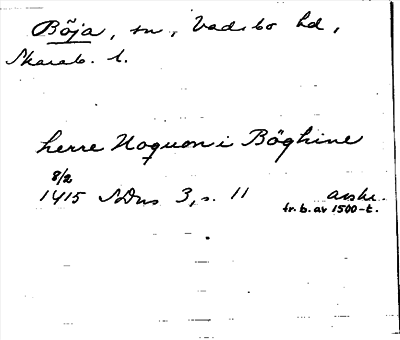 Böja, sn, Vadsbo hd,
Skarab. l.
herre Noquon i Böghine
8/2
1415 SDns 3, s. 11 avskr.
fr. b. av 1500-t.